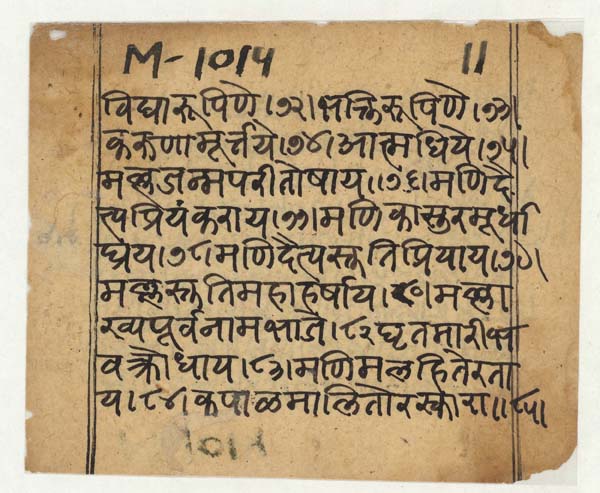 M-1014 11
विद्यारूपिणे।७२।भक्तिरूपिणे।७३।
करुणामूर्त्तये।७४।आत्मधिये।७५।
मल्लजन्मपरीतोषाय।।७६।मणिदै
त्यप्रियंकराय।७७।मणिकासुरमूर्धा
घ्रंय।७८।मणिदैत्यस्तुतिप्रियाय।७९।
मल्लस्तुतिमहाहर्षाय।८०।मल्ला
ख्यपूर्वनामभाजे।८२घृतमारीभ
वक्रोधाय।८३।मणिमल्लहितेरता
य।८४।कपाळमालितोरस्काय।।८५।
1014